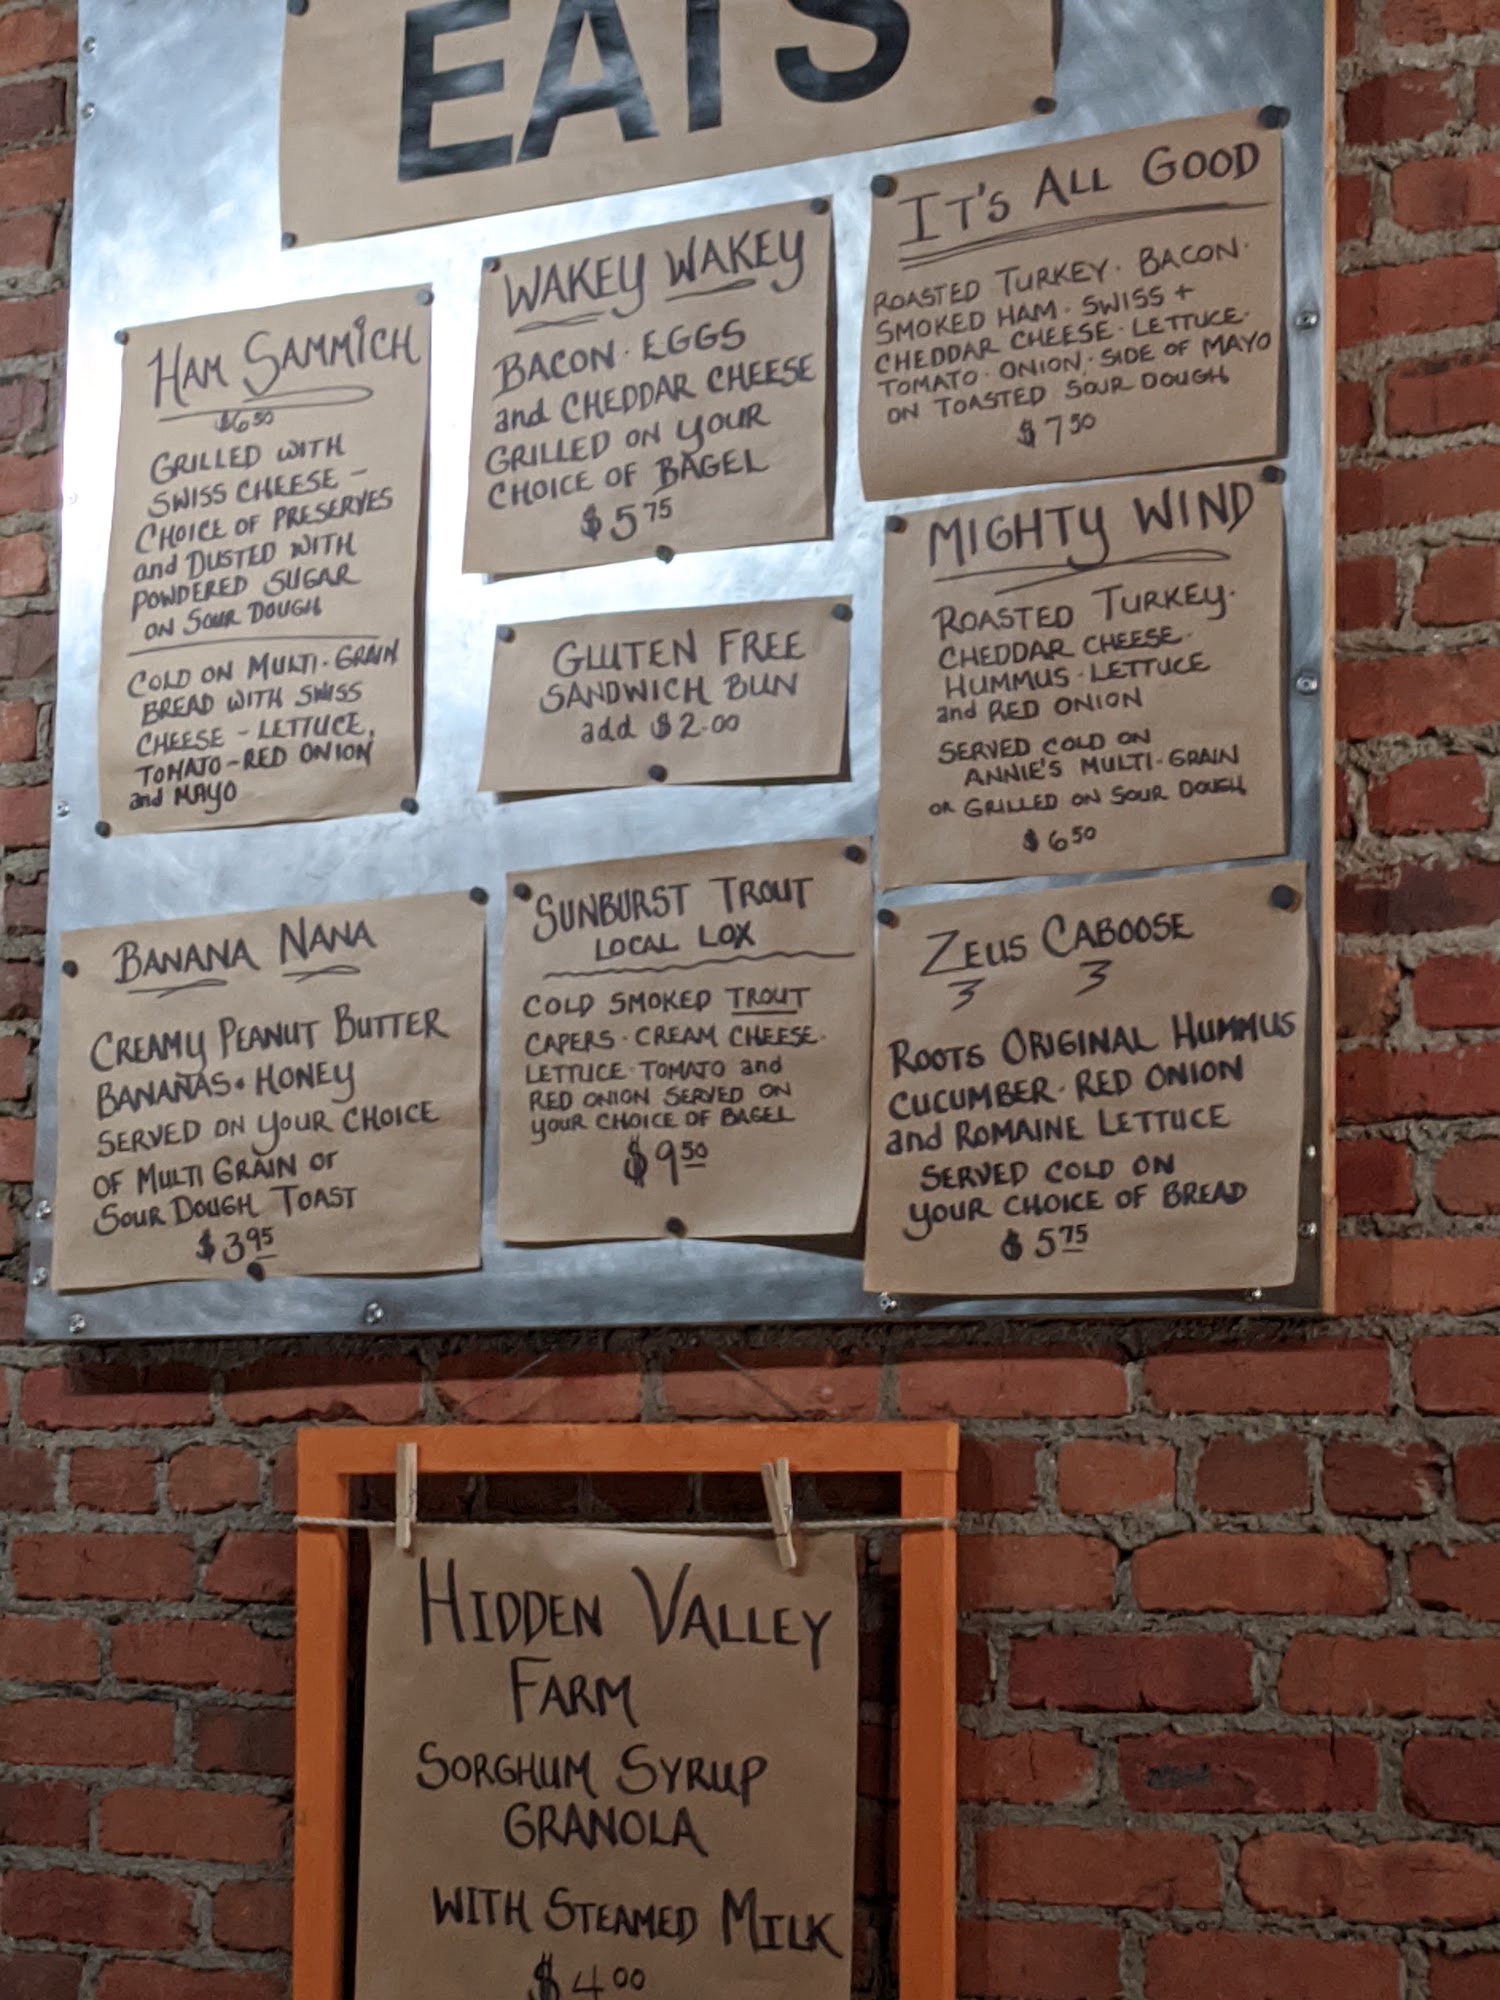 EATS
HAM SAMMICH
$6.50
GRILLED WITH
SWISS CHEESE -
CHOICE OF PRESERVES
and DUSTED WITH
POWDERED SUGAR
ON SOUR DOUGH
COLD ON MULTI-GRAIN
BREAD WITH SWISS
CHEESE - LETTUCE,
TOMATO - RED ONION
and MAYO
WAKEY WAKEY
BACON · EGGS
and CHEDDAR CHEESE
GRILLED ON YOUR
CHOICE OF BAGEL
$5.75
IT'S ALL GOOD
ROASTED TURKEY · BACON ·
SMOKED HAM · SWISS +
CHEDDAR CHEESE · LETTUCE ·
TOMATO · ONION · SIDE OF MAYO
ON TOASTED SOUR DOUGH
$7.50
GLUTEN FREE
SANDWICH BUN
add $2.00
MIGHTY WIND
ROASTED TURKEY ·
CHEDDAR CHEESE ·
HUMMUS · LETTUCE
and RED ONION
SERVED COLD ON
ANNIE'S MULTI-GRAIN
or GRILLED ON SOUR DOUGH
$6.50
BANANA NANA
CREAMY PEANUT BUTTER
BANANAS · HONEY
SERVED ON YOUR CHOICE
OF MULTI GRAIN or
SOUR DOUGH TOAST
$3.95
SUNBURST TROUT
LOCAL LOX
COLD SMOKED TROUT
CAPERS · CREAM CHEESE ·
LETTUCE · TOMATO and
RED ONION SERVED ON
YOUR CHOICE OF BAGEL
$9.50
ZEUS CABOOSE
ROOTS ORIGINAL HUMMUS
CUCUMBER · RED ONION
and ROMAINE LETTUCE
SERVED COLD ON
YOUR CHOICE OF BREAD
$5.75
HIDDEN VALLEY
FARM
SORGHUM SYRUP
GRANOLA
WITH STEAMED MILK
$4.00